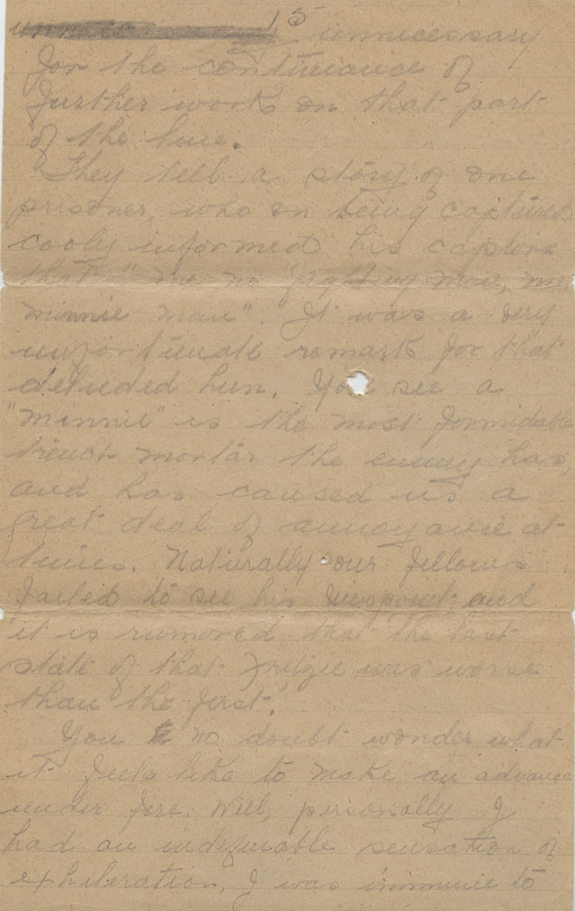 15 unnecessary
for the continuance of
further work on that part
of the line.
They tell a story of one
prisoner, who on being captured
cooly informed his captors
that "me no fighting man, me
minnie man". It was a very
unfortunate remark for that
deluded hun. You see a
"minnie" is the most formidable
trench mortar the enemy has,
and has caused us a
great deal of annoyance at
times. Naturally our fellows
failed to see his viewpoint, and
it is rumored that the last
state of that Fritzie was worse
than the first.
You no doubt wonder what
it feels like to make an advance
under fire. Well, personally I
had an indefinable sensation of
exhileration, I was immune to